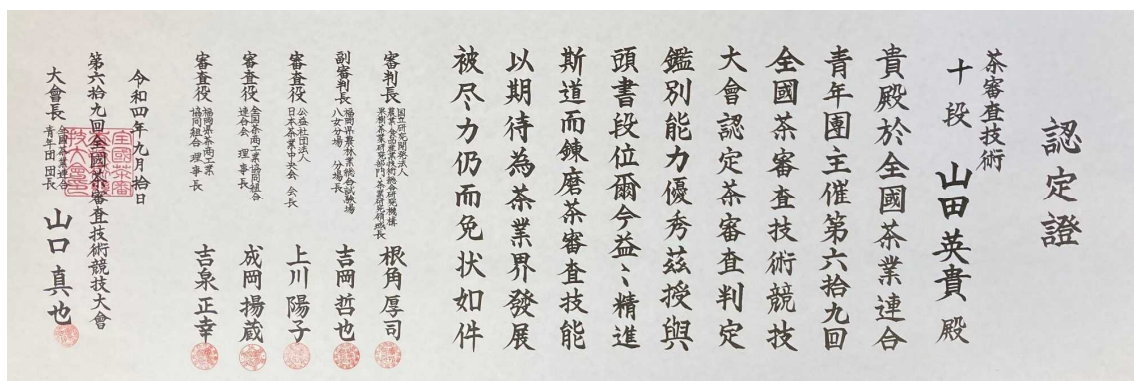 認定證
茶審査技術
十段 山田英貴 殿
貴殿於全國茶業連合
青年團主催第六拾九回
全國茶審査技術競技
大會認定茶審査判定
鑑別能力優秀茲授與
頭書段位爾今益〻精進
斯道而錬磨茶審査技能
以期待為茶業界發展
被尽力仍而免状如件
審判長 国立研究開発法人
農業・食品産業技術総合研究機構
果樹茶業研究部門 茶業研究領域長 根角厚司
副審判長 福岡県農林業総合試験場
八女分場 分場長 吉岡哲也
審査役 公益社団法人
日本茶業中央会 会長 上川陽子
審査役 全国茶商工業協同組合
連合会 理事長 成岡揚蔵
審査役 福岡県茶商工業
協同組合 理事長 吉泉正幸
令和四年九月拾日
第六拾九回全國茶審査技術競技大會
大會長 全國茶業連合
青年団 団長 山口真也